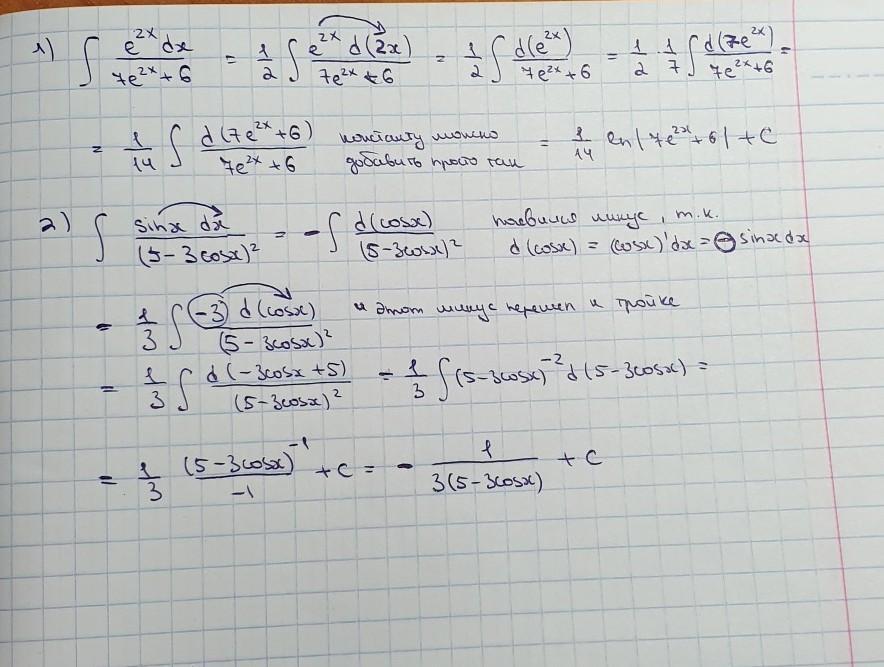 1) ∫ e^{2x} dx / (7e^{2x} + 6) = 1/2 ∫ e^{2x} d(2x) / (7e^{2x} + 6) = 1/2 ∫ d(e^{2x}) / (7e^{2x} + 6) = 1/2 · 1/7 ∫ d(7e^{2x}) / (7e^{2x} + 6) =
= 1/14 ∫ d(7e^{2x} + 6) / (7e^{2x} + 6) константу можно добавить просто так = 1/14 ln|7e^{2x} + 6| + C
2) ∫ sinx dx / (5 - 3cosx)^2 = - ∫ d(cosx) / (5 - 3cosx)^2 появился минус, т.к. d(cosx) = (cosx)'dx = -sinx dx
= 1/3 ∫ (-3) d(cosx) / (5 - 3cosx)^2 и этот минус перешел к тройке
= 1/3 ∫ d(-3cosx + 5) / (5 - 3cosx)^2 = 1/3 ∫ (5 - 3cosx)^{-2} d(5 - 3cosx) =
= 1/3 (5 - 3cosx)^{-1} / -1 + C = - 1 / 3(5 - 3cosx) + C